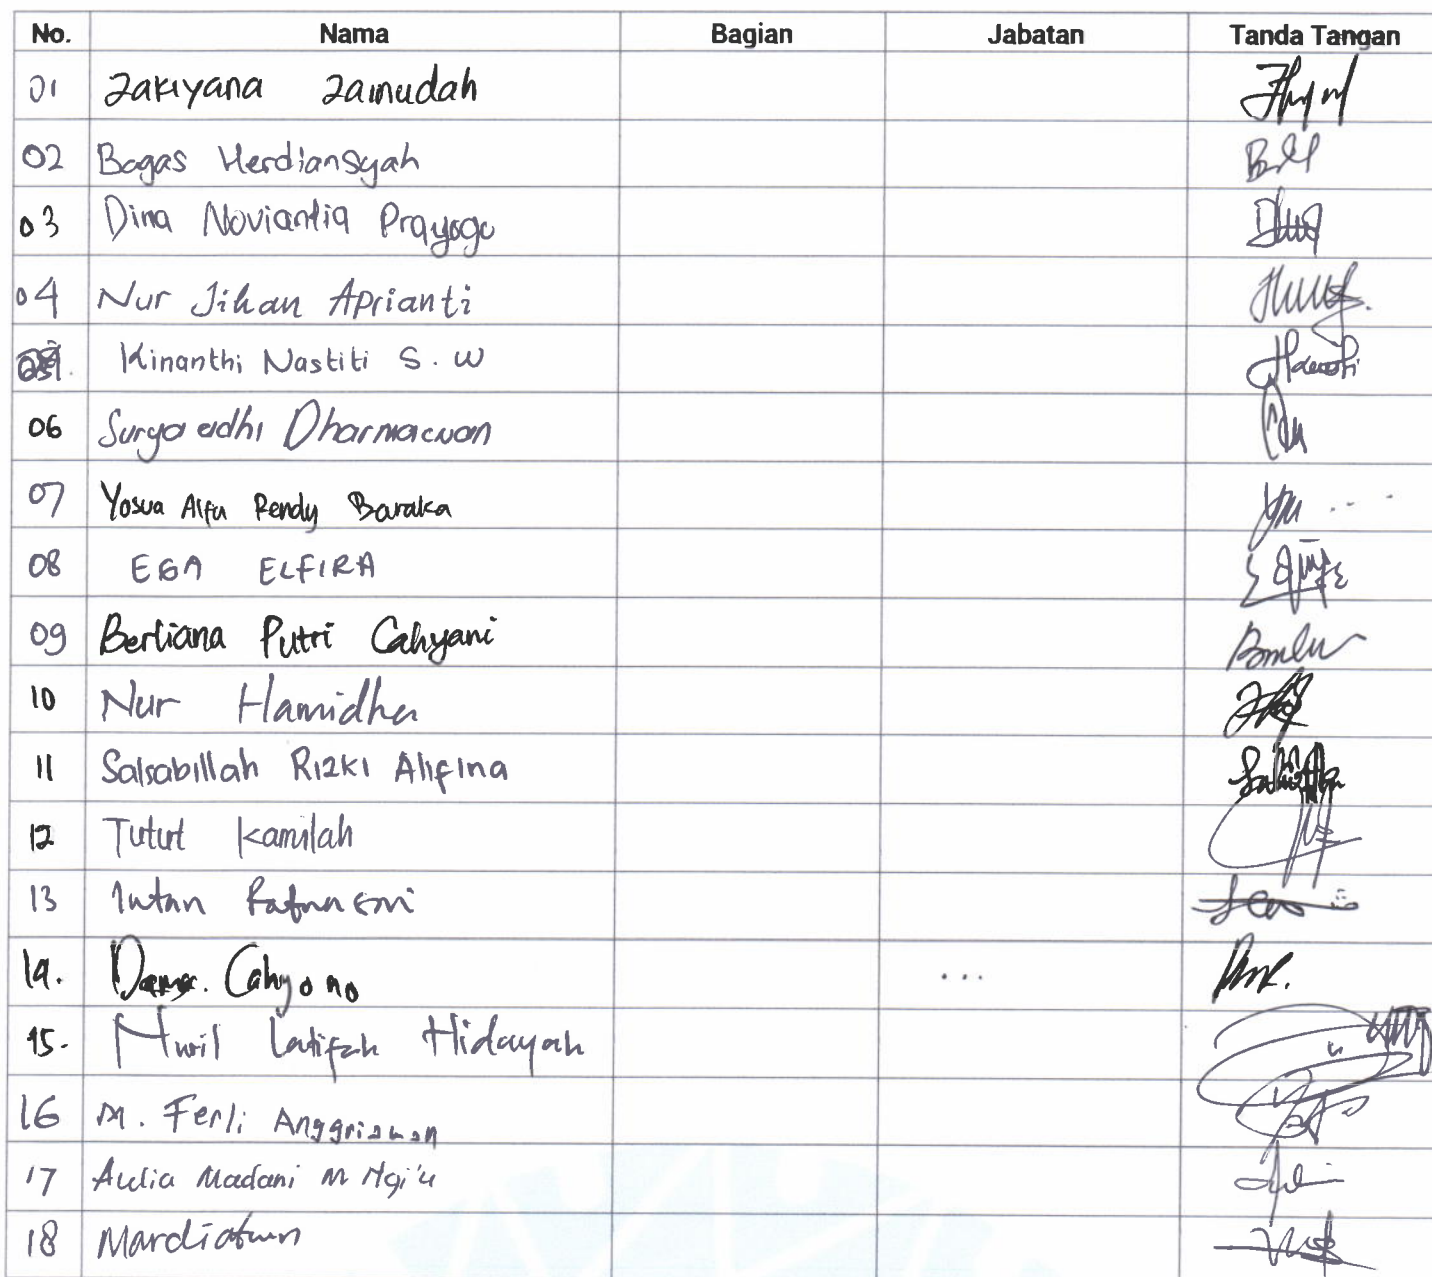 No. Nama Bagian Jabatan Tanda Tangan
01 Zakiyana Zainudah
02 Bagas Herdiansyah
03 Dina Noviantia Prayogo
04 Nur Jihan Aprianti
Kinanthi Nastiti S. W
06 Surya adhi Dharmawan
07 Yosua Alfa Rendy Baraka
08 EGA ELFIRA
09 Berliana Putri Cahyani
10 Nur Hamidha
11 Salsabillah Rizki Alifina
12 Tutut Kamilah
13 Intan Ratnasari
14. Cahyono ...
15. Nuril Latifah Hidayah
16 M. Ferli Anggriawan
17 Aulia Madani M
18 Mardiatun